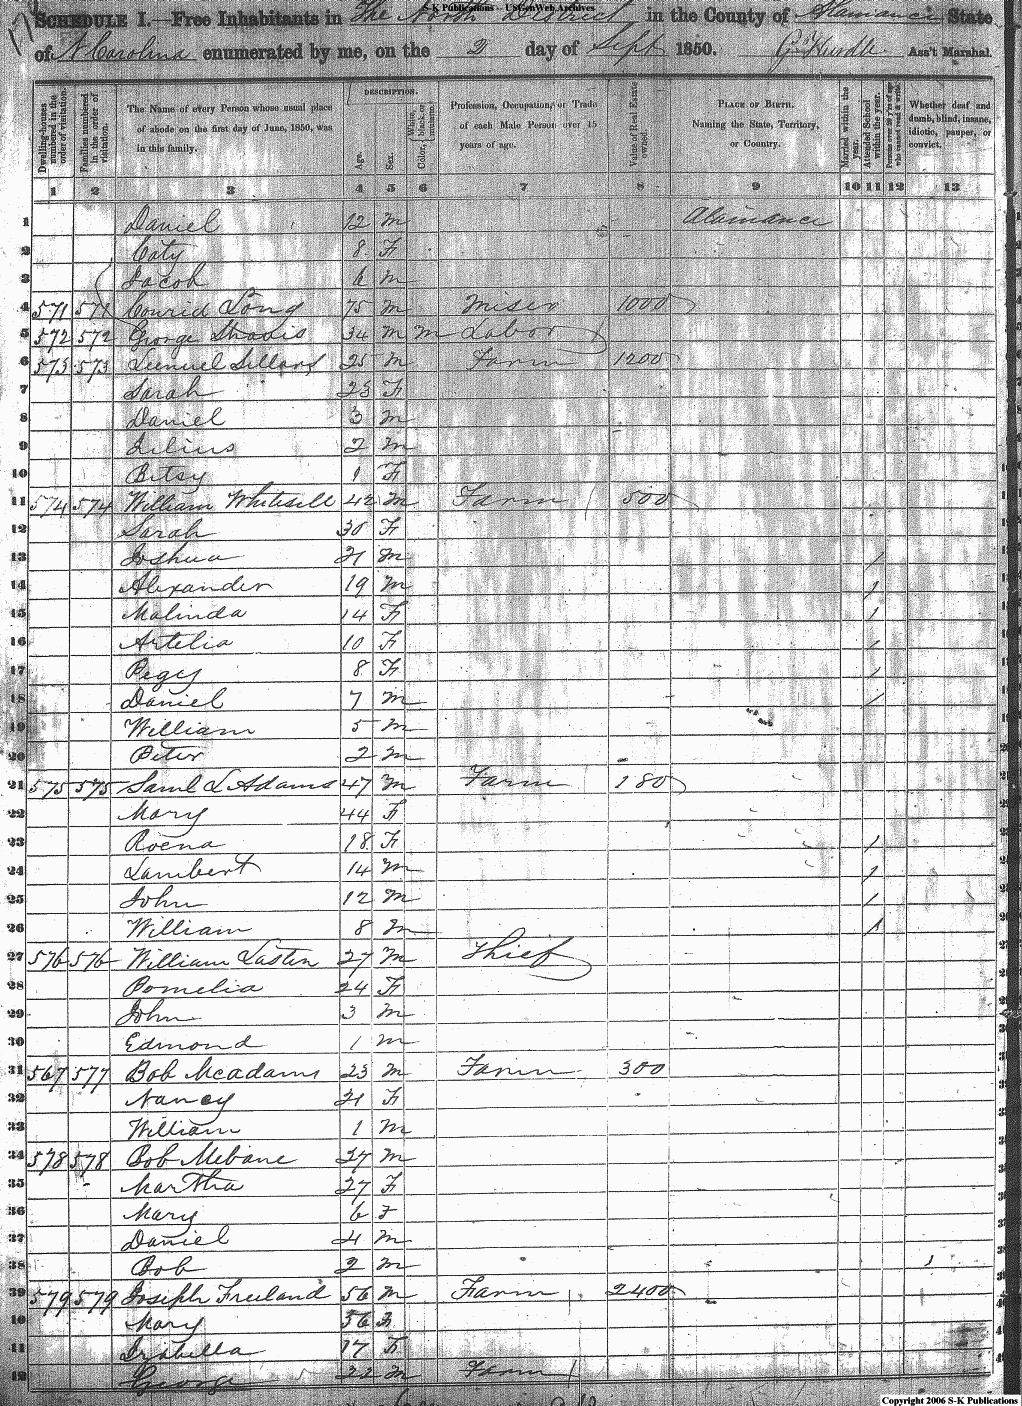 S-K Publications -- USGenWeb Archives
SCHEDULE I.—Free Inhabitants in The North District in the County of Alamance State
of N Carolina enumerated by me, on the 2 day of Sept 1850. G Hurdle Ass't Marshal.
Dwelling-houses numbered in the order of visitation.
Families numbered in the order of visitation.
The Name of every Person whose usual place of abode on the first day of June, 1850, was in this family.
DESCRIPTION.
Age.
Sex.
Color, White, black, or mulatto.
Profession, Occupation, or Trade of each Male Person over 15 years of age.
Value of Real Estate owned.
PLACE OF BIRTH. Naming the State, Territory, or Country.
Married within the year.
Attended School within the year.
Persons over 20 y'rs of age who cannot read & write.
Whether deaf and dumb, blind, insane, idiotic, pauper, or convict.
1 2 3 4 5 6 7 8 9 10 11 12 13
1 Daniel 12 m Alamance
2 Caty 8 F
3 Jacob 6 m
4 571 571 Conrid Long 75 m Miser 1000
5 572 572 George Travis 34 m m Labor
6 573 573 Lemuel Sellars 25 m Farm 1200
7 Sarah 23 F
8 Daniel 3 m
9 2 m
10 Bitsy 1 F
11 574 574 William Whitsell 42 m Farm 500
12 Sarah 30 F
13 Joshua 21 m 1
14 Alexander 19 m 1
15 Malinda 14 F 1
16 Artelia 10 F 1
17 Pegy 8 F 1
18 Daniel 7 m 1
19 William 5 m
20 Peter 2 m
21 575 575 Saml L Adams 47 m Farm 180
22 Mary 44 F
23 Roena 18 F 1
24 Lambert 14 m 1
25 John 12 m 1
26 William 8 m 1
27 576 576 William Lasten 27 m Thief
28 Pomelia 24 F
29 John 3 m
30 Edmond 1 m
31 567 577 Bob Mcadams 23 m Farm 300
32 Nancy 21 F
33 William 1 m
34 578 578 Bob Mebane 27 m
35 Martha 27 F
36 Mary 6 F
37 Daniel 4 m
38 Bob 2 m
39 579 579 Joseph Freeland 56 m Farm 2400
40 Mary 56 F
41 Isabella 17 F
42 George 22 m Farm
Copyright 2006 S-K Publications